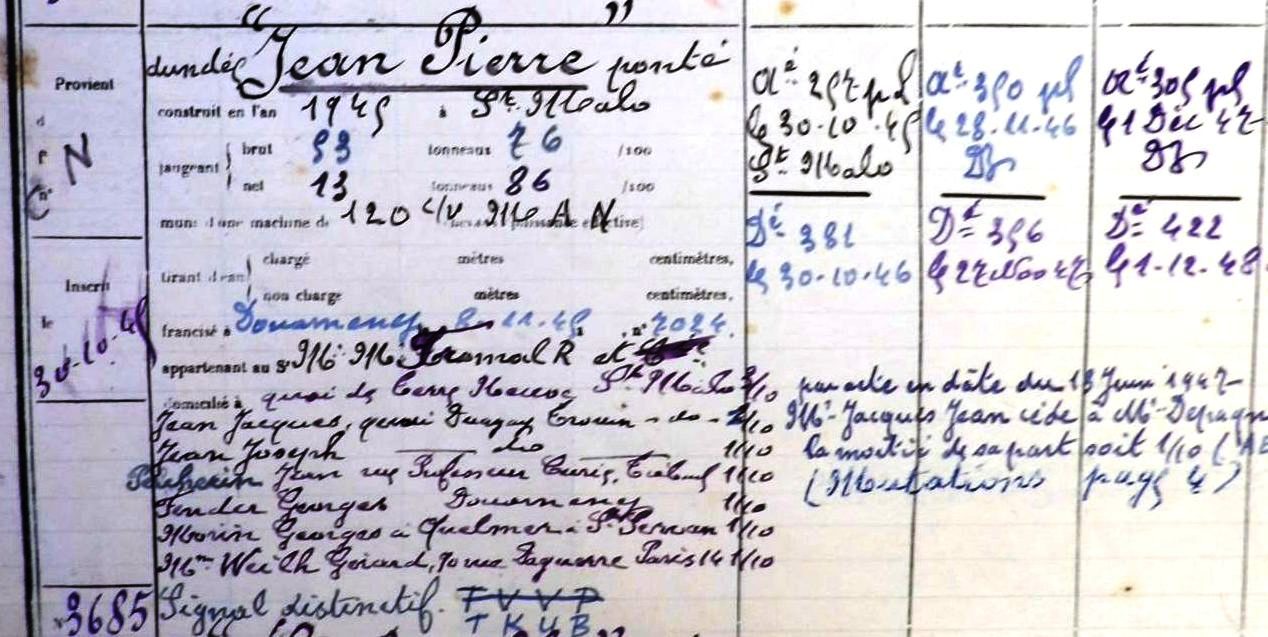 " Jean Pierre " ponté
dundée
Provient
d
r
n°
N
construit en l'an 1945 à St Malo
jaugeant { brut 53 tonneaux 76 /100
net 13 tonneaux 86 /100
muni d'une machine de 120 c/v M A N
tirant d'eau { chargé mètres centimètres,
non chargé mètres centimètres,
francisé à Douarnenez 11.45 n° 2024.
appartenant au Sr M. M. R et
domicilié à quai de St Malo 3/10
Jean Jacques, quai Duguay Trouin - do - 2/10
Jean Joseph do 1/10
Jean rue Professeur Curie, 1/10
Georges Douarnenez 1/10
Morin Georges à Quelmer à St Servan 1/10
Mme Weith Gérard, 70 rue Daguerre Paris 14 1/10
Inscrit
le
30-10-45
N° 3685
Signal distinctif. F V V P
T K U B
At 257 pl
le 30-10-45
St Malo
Dt 381
le 30-10-46
At 350 pl
le 28-11-46
Dz
Dt 356
le 27 Nov 47
At 305 pl
le 1 Déc 47
Dz
Dt 422
le 1-12-48
par acte en date du 13 Juin 1947
Mr Jacques Jean cède à Mr
la moitié de sa part soit 1/10
(Mutations page 4)